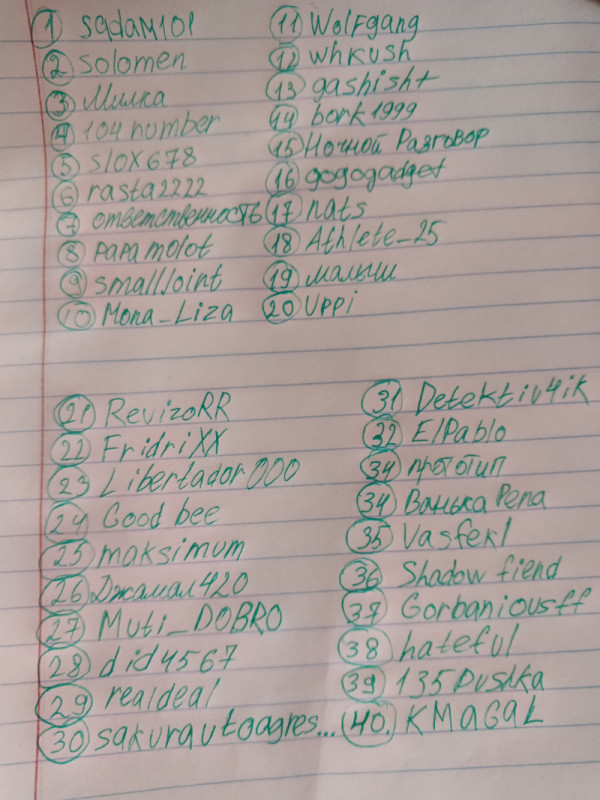 1 sqdam101
2 solomen
3 Милка
4 104 number
5 slox678
6 rasta2222
7 ответственность
8 papa molot
9 smallJoint
10 Mona_Liza
11 Wolfgang
12 whkush
13 gashisht
14 bork1999
15 Ночной Разговор
16 gogogadget
17 nats
18 Athlete_25
19 малыш
20 Uppi
21 RevizoRR
22 FridriXX
23 Libertador000
24 Good bee
25 maksimum
26 Джамал420
27 Muti_DOBRO
28 did4567
29 realdeal
30 sakurautoagres...
31 Detektiv4ik
32 ElPablo
34 прототип
34 Ванька Репа
35 Vasfekl
36 Shadow fiend
37 Gorbaniousff
38 hateful
39 135Dusika
40. KMAGAL